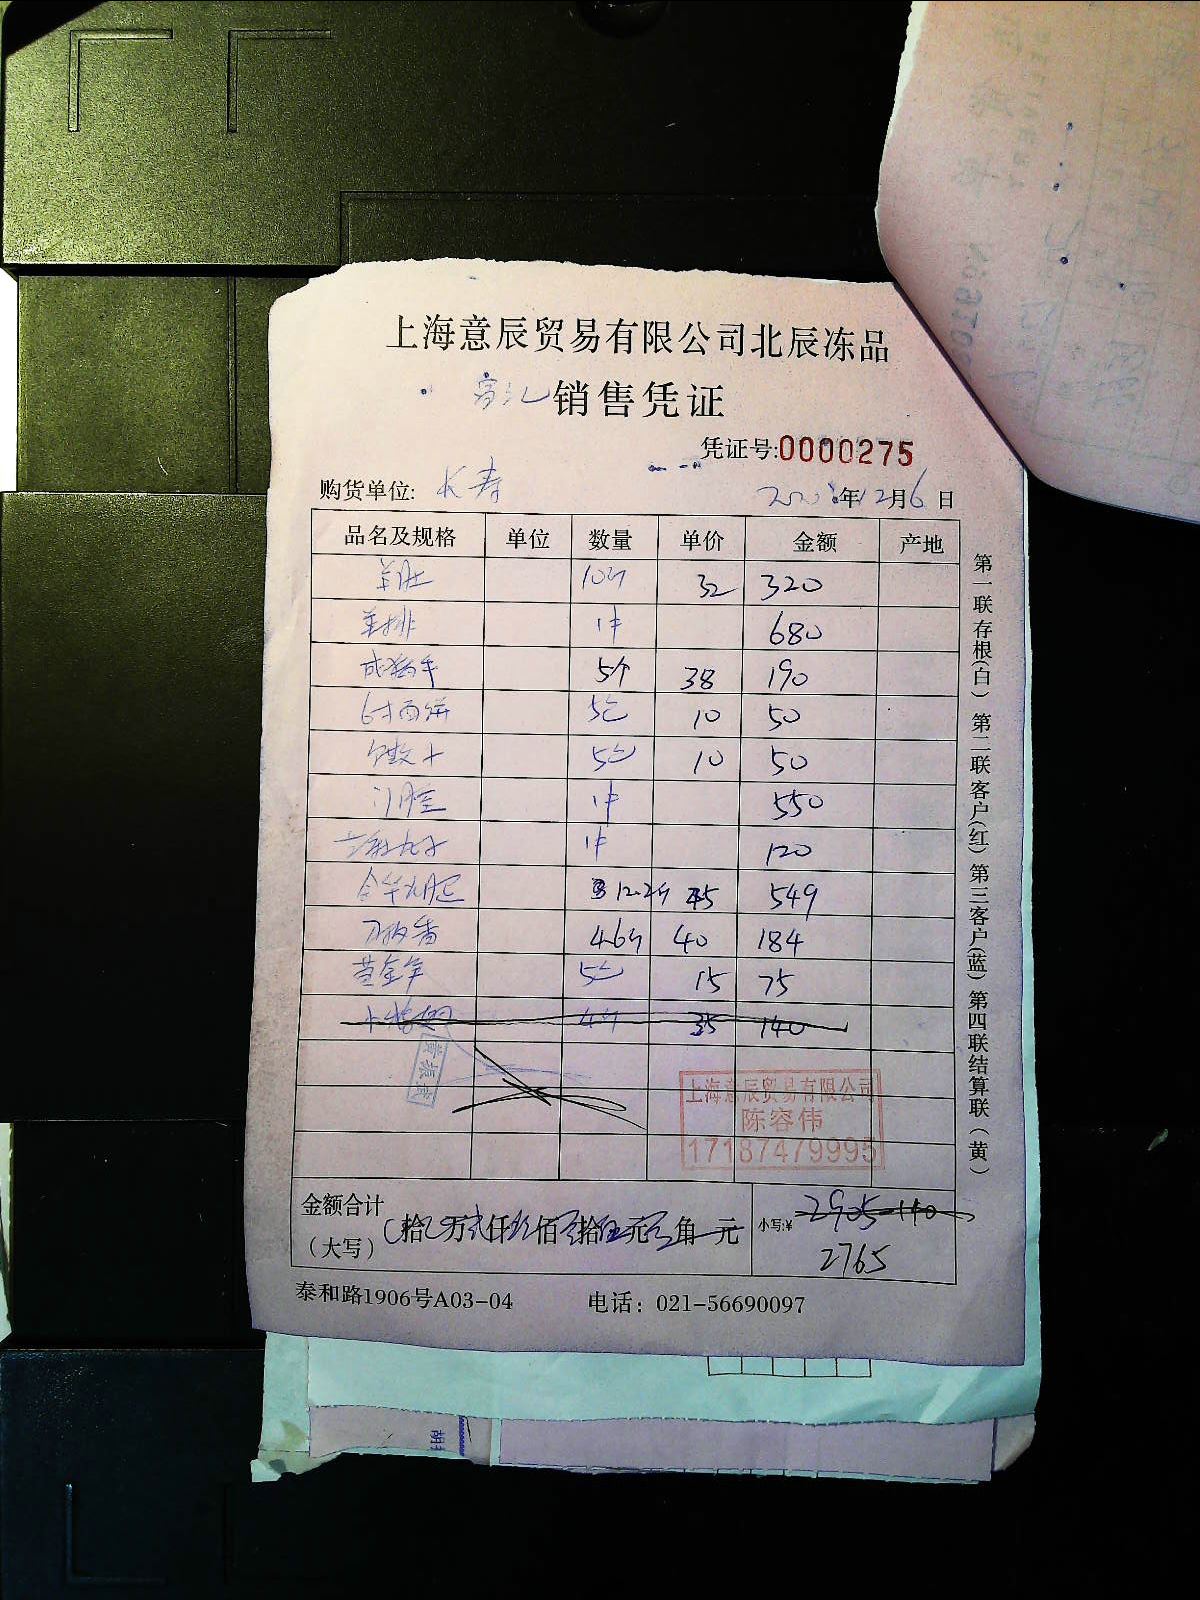 上海意辰贸易有限公司北辰冻品
销售凭证
凭证号:0000275
购货单位: 长寿
年12月6日
品名及规格 单位 数量 单价 金额 产地
羊肚 10斤 32 320
羊排 1件 680
5个 38 190
6寸面饼 5包 10 50
5包 10 50
1件 550
1件 120
12.2斤 45 549
刀板香 4.6斤 40 184
5包 15 75
4斤 35 140
上海意辰贸易有限公司
陈容伟
17187479995
金额合计
(大写) 拾 万 仟 佰 拾 元 角 元
小写:¥ 2905-140
2765
泰和路1906号A03-04 电话: 021-56690097
第一联存根(白) 第二联客户(红) 第三客户(蓝) 第四联结算联(黄)